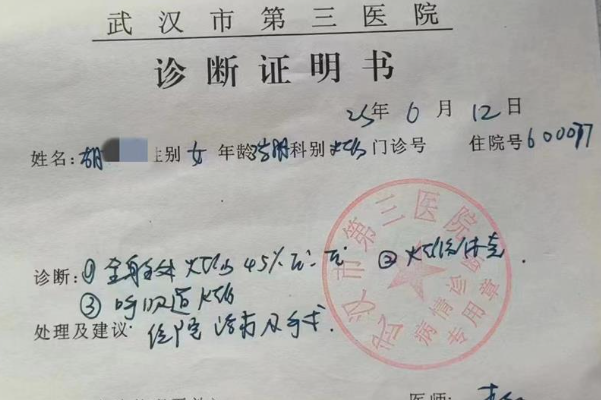 武汉市第三医院
诊断证明书
25年6月12日
姓名:胡 性别 女 年龄 科别 烧伤 门诊号 住院号600077
诊断:① 全身多处烧伤45% ② 烧伤休克.
③ 呼吸道烧伤
处理及建议: 住院治疗及手术.
武汉市第三医院
病情诊断
专用章
医师: